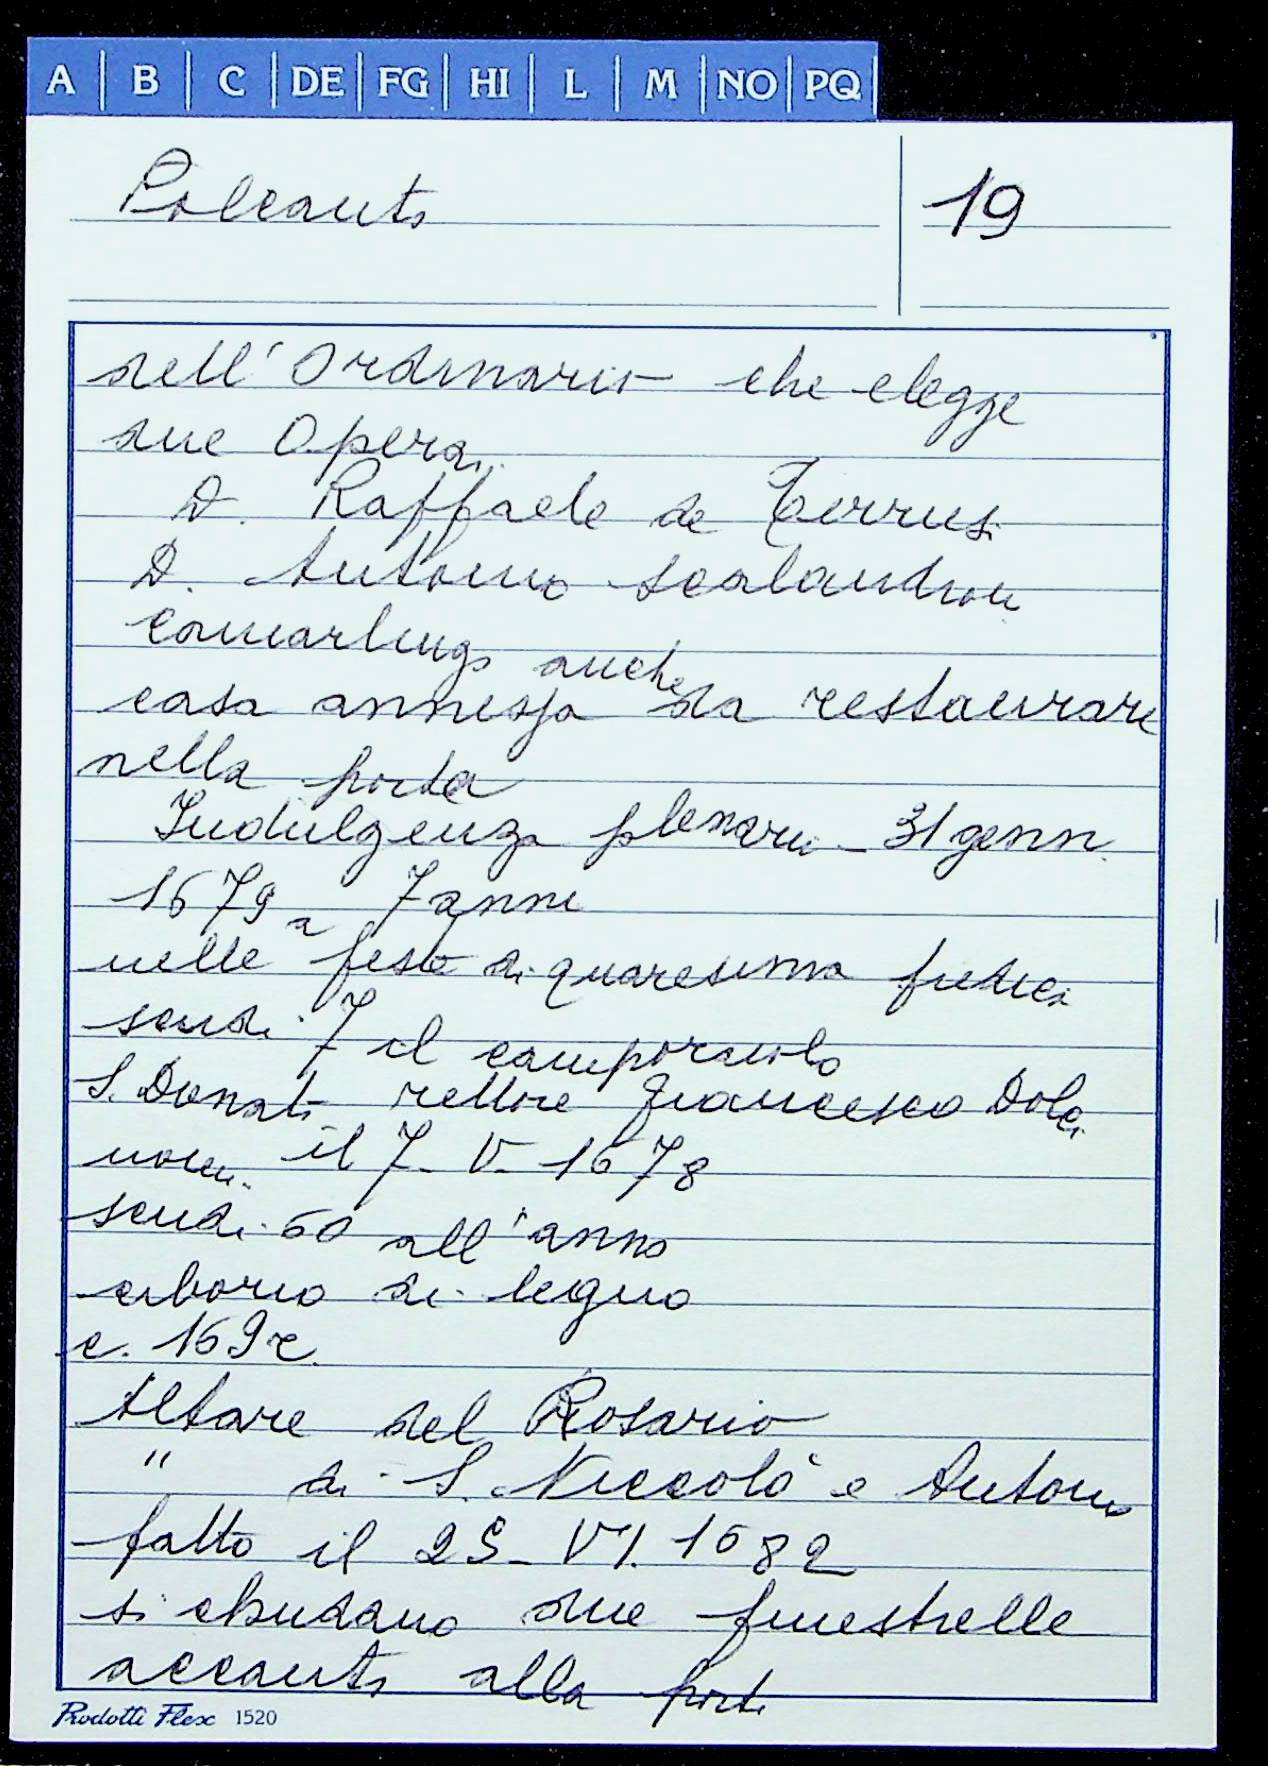 A B C DE FG HI L M NO PQ
Polcanto 19
dell'Ordinario che elegge
due Opera
D. Raffaele de Terrusi
D. Antonio Scalandroni
Camarlingo anche
casa annessa da restaurare
nella porta
Indulgenza plenaria - 31 genn.
1679 a 7 anni
nelle feste di quaresima frutta
scudi 7 il campornolo
S. Donato rettore Francesco Dolci
nom. il 7-V-1678
scudi 60 all'anno
ciborio di legno
c. 169r.
Altare del Rosario
" di S. Niccolò e Antonio
fatto il 25-VI.1682
si chiudano due finestrelle
accanto alla porta
Prodotti Flex 1520